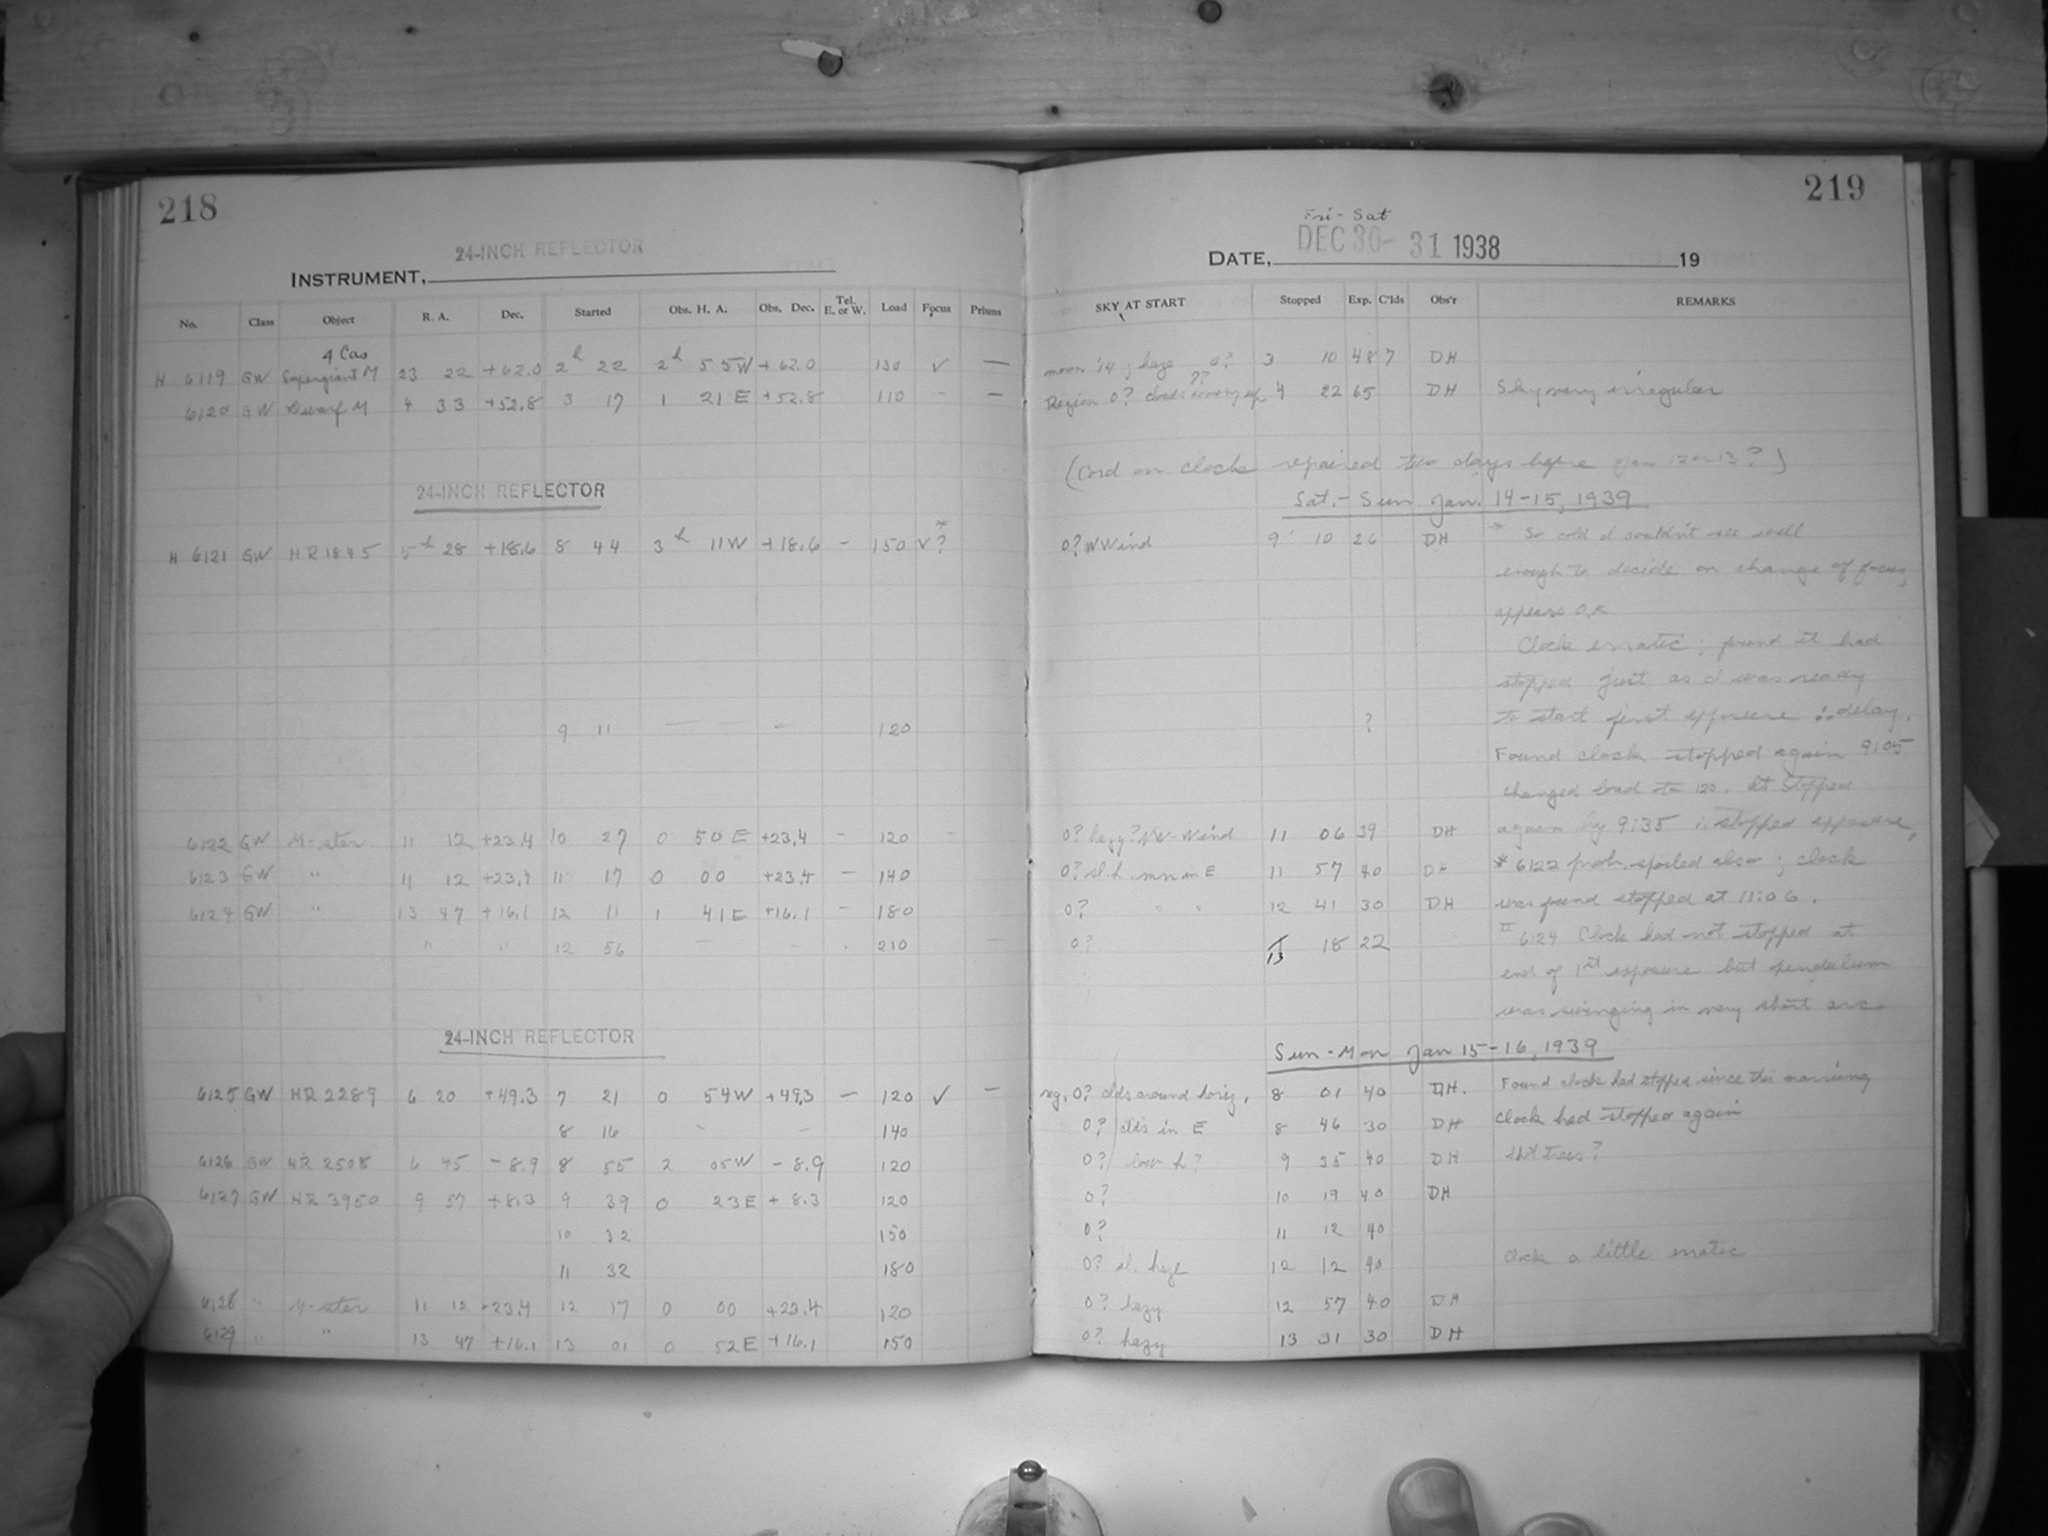 218
24-INCH REFLECTOR
INSTRUMENT,
No. Class Object R. A. Dec. Started Obs. H. A. Obs. Dec. Tel. E. or W. Load Focus Prisms
4 Cas
H 6119 GW Supergiant M 23 22 +62.0 2h 22 2h 55W +62.0 130 ✓ —
6120 GW Dwarf M 4 33 +52.8 3 17 1 21 E +52.8 110 — —
24-INCH REFLECTOR
*
H 6121 GW HR 1845 5h 28 +18.6 8 44 3h 11W +18.6 - 150 ✓?
9 11 — — — 120
6122 GW M-star 11 12 +23.4 10 27 0 50 E +23.4 - 120 -
6123 GW " 11 12 +23.4 11 17 0 00 +23.4 - 140
6124 GW " 13 47 +16.1 12 11 1 41E +16.1 - 180
" " 12 56 — 210 —
24-INCH REFLECTOR
6125 GW HR 2289 6 20 +49.3 7 21 0 54W +49.3 — 120 ✓ —
8 16 - - 140
6126 GW HR 2508 6 45 -8.9 8 55 2 05W -8.9 120
6127 GW HR 3950 9 57 +8.3 9 39 0 23E +8.3 120
10 32 150
11 32 180
6128 " M-star 11 12 +23.4 12 17 0 00 +23.4 120
6129 " " 13 47 +16.1 13 01 0 52E +16.1 150
219
Fri - Sat
DATE, DEC 30-31 1938 19
SKY AT START Stopped Exp. C'lds Obs'r REMARKS
moon 1/4; haze 0? 3 10 48 7 DH
Region 0? clouds ?? 4 22 65 DH Sky very irregular
(Cord on clock repaired two days before Jan 12 or 13?)
Sat. - Sun Jan. 14-15, 1939
0? W Wind 9 10 26 DH * So cold I couldn't see well
enough to decide on change of focus,
appears O.K
Clock erratic; found it had
stopped just as I was ready
? to start first exposure ∴ delay.
Found clock stopped again 9:05
changed load to 120. It stopped
0? hazy? NW-Wind 11 06 39 DH again by 9:35 ∴ stopped exposure,
0? sl. h. mn in E 11 57 40 DH * 6122 prob. spoiled also; clock
0? " " 12 41 30 DH was found stopped at 11:06.
0? 13 18 22 II 6124 Clock had not stopped at
end of 1st exposure but pendulum
was swinging in very short arc
Sun - Mon Jan 15-16, 1939
reg. 0? clds around horiz, 8 01 40 DH. Found clock had stopped since this morning
0? clds in E 8 46 30 DH Clock had stopped again
0? low h? 9 35 40 DH trees?
0? 10 19 40 DH
0? 11 12 40
0? sl. haze 12 12 40 Clock a little erratic
0? hazy 12 57 40 DH
0? hazy 13 31 30 DH